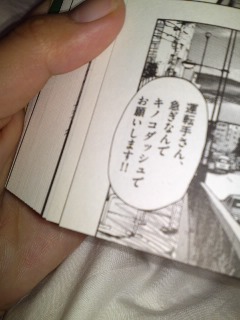 運転手さん、
急ぎなんで
キノコダッシュで
お願いします!!